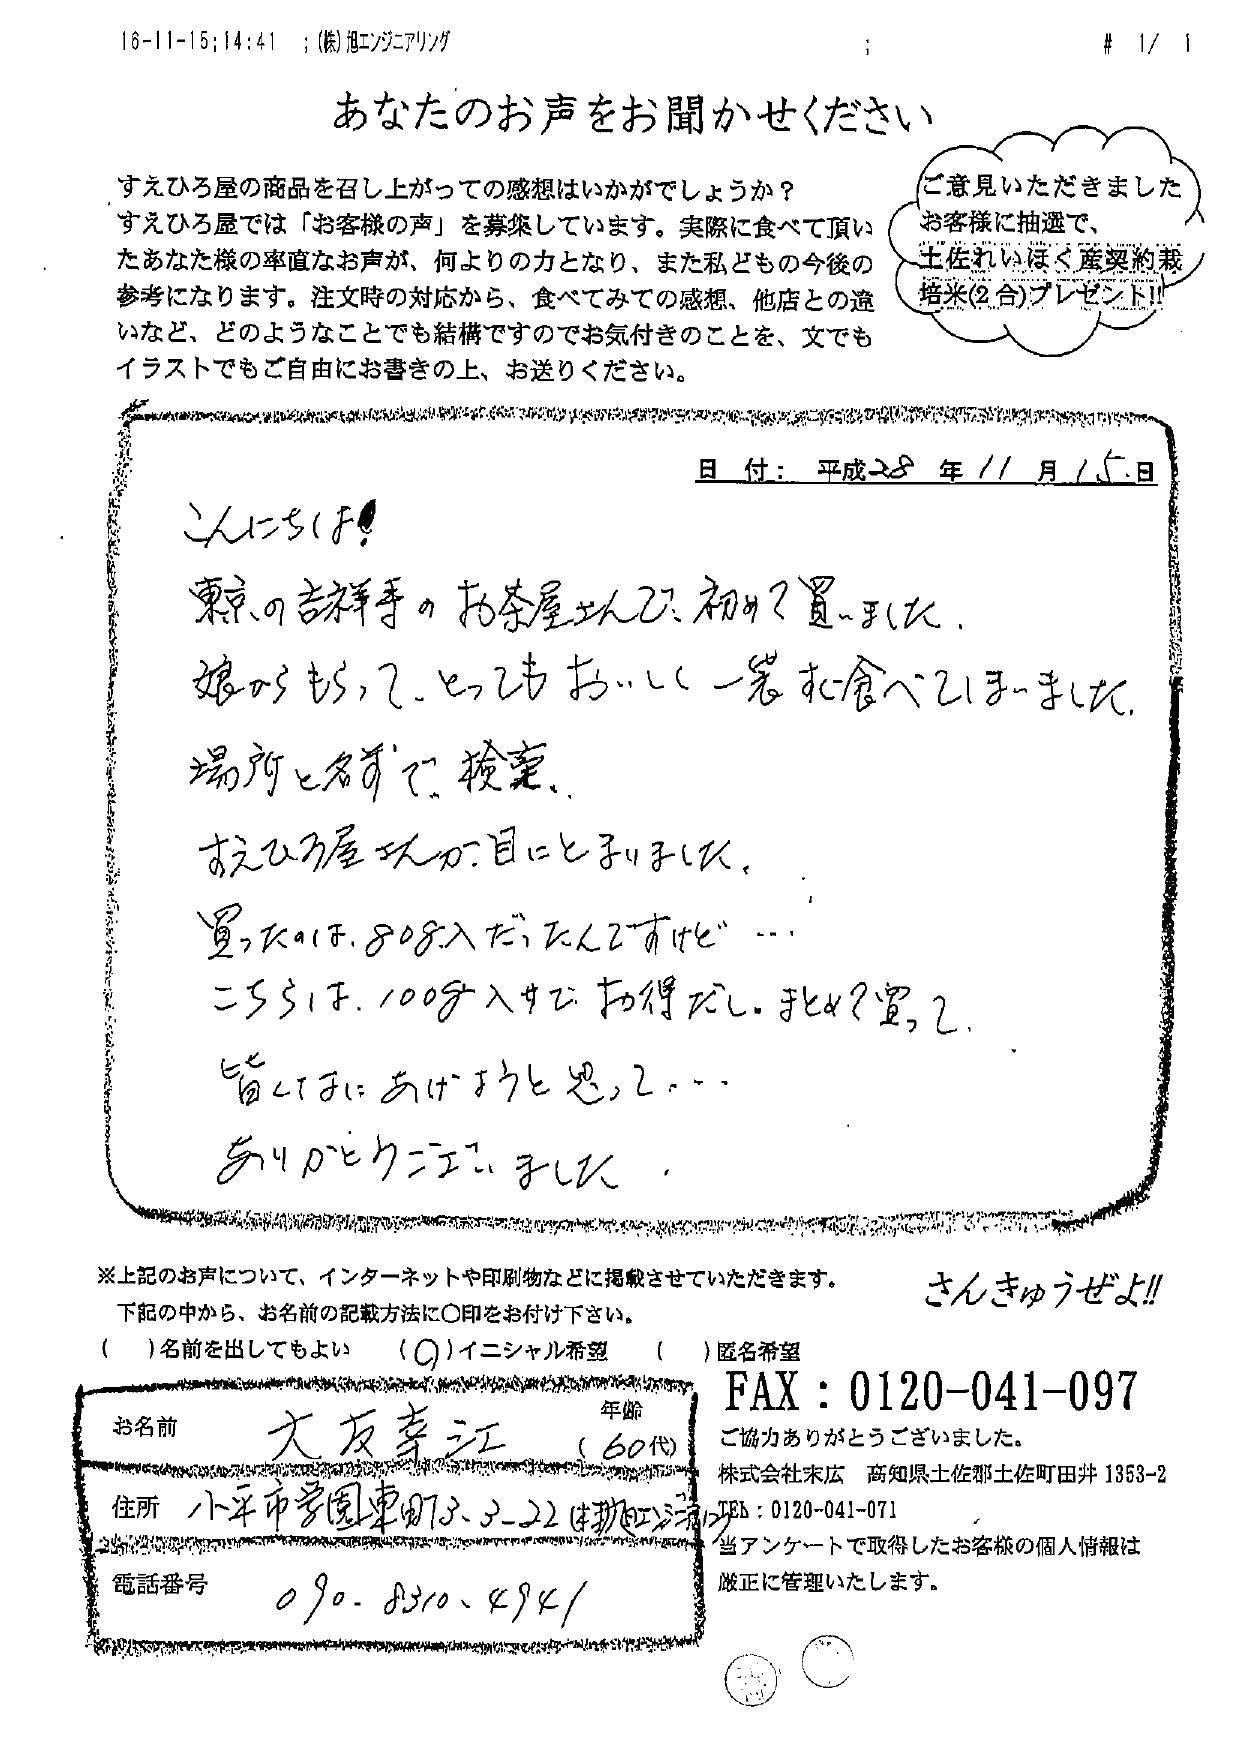 16-11-15;14:41 ;(株)旭エンジニアリング ; # 1/ 1
あなたのお声をお聞かせください
すえひろ屋の商品を召し上がっての感想はいかがでしょうか？
すえひろ屋では「お客様の声」を募集しています。実際に食べて頂い
たあなた様の率直なお声が、何よりの力となり、また私どもの今後の
参考になります。注文時の対応から、食べてみての感想、他店との違
いなど、どのようなことでも結構ですのでお気付きのことを、文でも
イラストでもご自由にお書きの上、お送りください。
ご意見いただきました
お客様に抽選で、
土佐れいほく産契約栽
培米(2合)プレゼント!!
日 付： 平成28年11月15日
こんにちは!
東京の吉祥寺のお茶屋さんで、初めて買いました.
娘からもらって、とってもおいしく一袋すぐ食べてしまいました.
場所と名前で、検索、
すえひろ屋さんが、目にとまりました.
買ったのは、80g入だったんですけど…
こちらは、100g入りで、お得だし。まとめて買って、
皆さまにあげようと思って…
ありがとうございました.
※上記のお声について、インターネットや印刷物などに掲載させていただきます。
下記の中から、お名前の記載方法に〇印をお付け下さい。
( )名前を出してもよい (〇)イニシャル希望 ( )匿名希望
さんきゅうぜよ!!
お名前 大友幸江 年齢 (60代)
住所 小平市学園東町3-3-22 (株)旭エンジニアリング
電話番号 090-8310-4941
FAX：0120-041-097
ご協力ありがとうございました。
株式会社末広 高知県土佐郡土佐町田井1353-2
TEL：0120-041-071
当アンケートで取得したお客様の個人情報は
厳正に管理いたします。